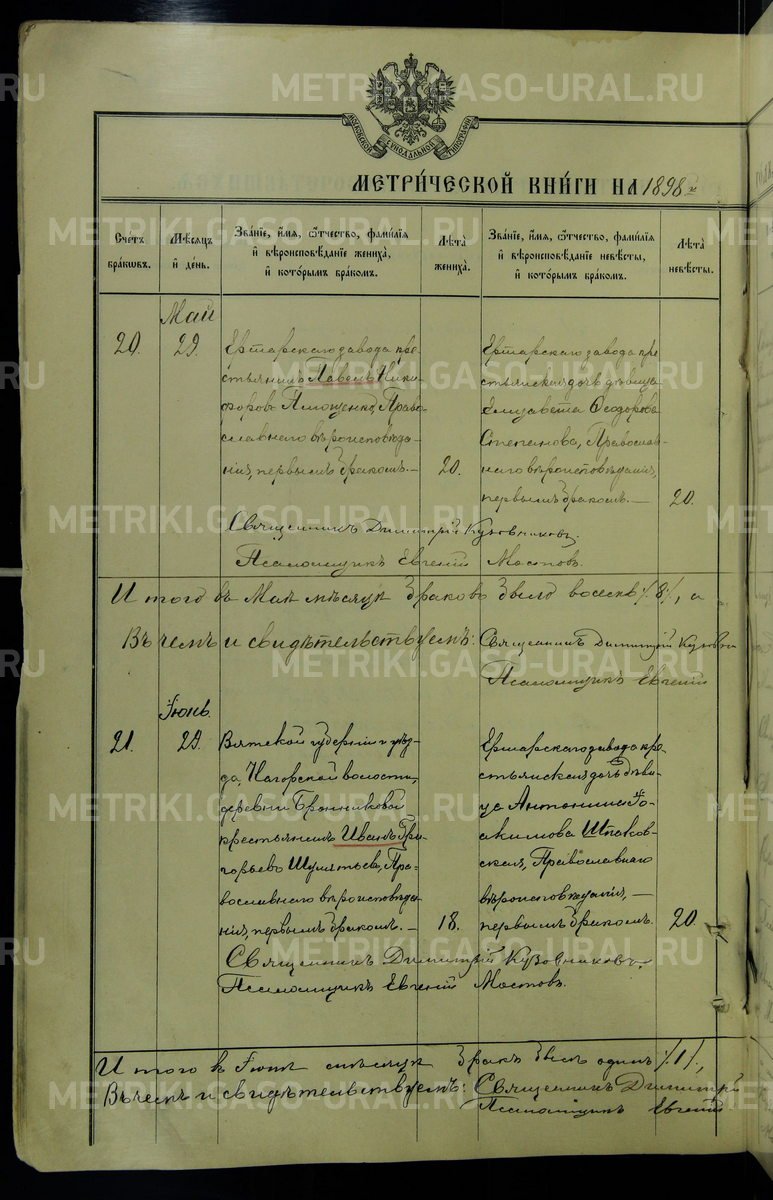 МОСКОВСКОЙ СУНОДАЛЬНОЙ ТИПОГРАФІИ
МЕТРИ́ЧЕСКОЙ КНИ́ГИ НА 1898 г.
Сче́тъ бра́кѡвъ.
Мѣ́сѧцъ и҆ де́нь.
Зва́нїе, и҆́мѧ, ѻ҆́тчество, фами́лїѧ и҆ вѣроисповѣ́данїе жениха̀, и҆ кото́рымъ бра́комъ.
Лѣ́та жениха̀.
Зва́нїе, и҆́мѧ, ѻ҆́тчество, фами́лїѧ и҆ вѣроисповѣ́данїе невѣ́сты, и҆ кото́рымъ бра́комъ.
Лѣ́та невѣ́сты.
Май
20. 29.
Ертарскаго завода кре-
стьянинъ Павелъ Ники-
форовъ Право-
славнаго вѣроисповѣда-
нія, первымъ бракомъ.—
20.
Ертарскаго завода кре-
стьянская дочь дѣвица
Елизавета Ѳеодорова
Степанова, Православ-
наго вѣроисповѣданія,
первымъ бракомъ.—
20.
Священникъ Димитрій Кузовниковъ.
Псаломщикъ Евгеній Мостовъ.
Итого въ Маѣ мѣсяцѣ браковъ было восемь /8/, а
Въ чемъ и свидѣтельствуемъ: Священникъ Димитрій Кузовни
Псаломщикъ Евгеній
Іюнь
21. 29.
Вятской губерніи и уѣз-
да, Нагорской волости,
деревни Бронниковой
крестьянинъ Иванъ Гри-
горьевъ Шулятьевъ, Пра-
вославнаго вѣроисповѣда-
нія, первымъ бракомъ.—
18.
Ертарскаго завода кре-
стьянская дочь дѣви-
ца Антонина Іо-
акимова Шпаков-
ская, Православнаго
вѣроисповѣданія,—
первымъ бракомъ.
20.
Священникъ Димитрій Кузовниковъ.
Псаломщикъ Евгеній Мостовъ.
Итого въ Іюнѣ мѣсяцѣ бракъ былъ одинъ /1/,
Въ чемъ и свидѣтельствуемъ: Священникъ Димитрій
Псаломщикъ Евгеній
METRIKI.GASO-URAL.RU